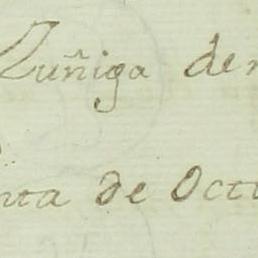 Zuñiga de
nta de Oct